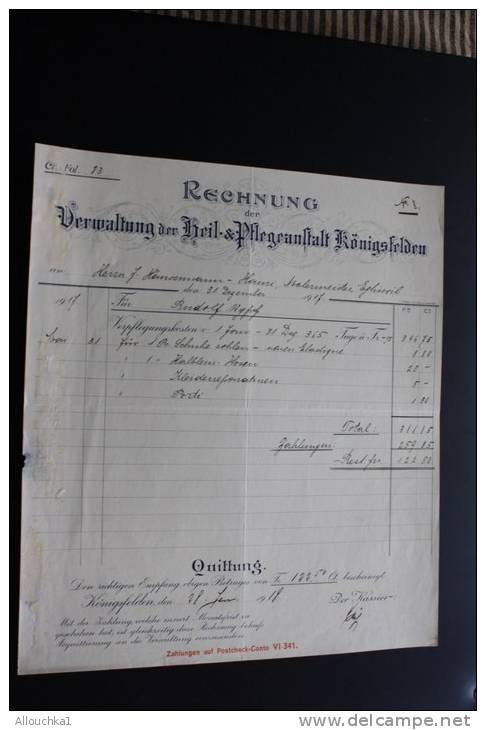 Ct. Fol. 93
RECHNUNG
der
Verwaltung der Heil-&Pflegeanstalt Königsfelden
Herrn J.
den 31 Dezember 1917.
1917 Für Rudolf
Verpflegungskosten v. 1 Janr - 31 Dez 365 Tage à Fr.
31 für 1 Pr. Schuhe sohlen
" 1 " Halblein-Hosen 20 -
" Kleiderreparaturen 5 -
"
Total:
Zahlungen
Rest. fr. 122 50
Quittung.
Den richtigen Empfang obigen Betrages von Fr. 122.50 Ct. bescheinigt
Königsfelden, den 28. 1918 Der Kassier
Mit der Zahlung, welche innert Monatsfrist zu
geschehen hat, ist gleichzeitig diese Rechnung behufs
Quittierung an die Verwaltung einzusenden.
Zahlungen auf Postcheck-Conto VI 341.
Allouchka1
delcampe.net